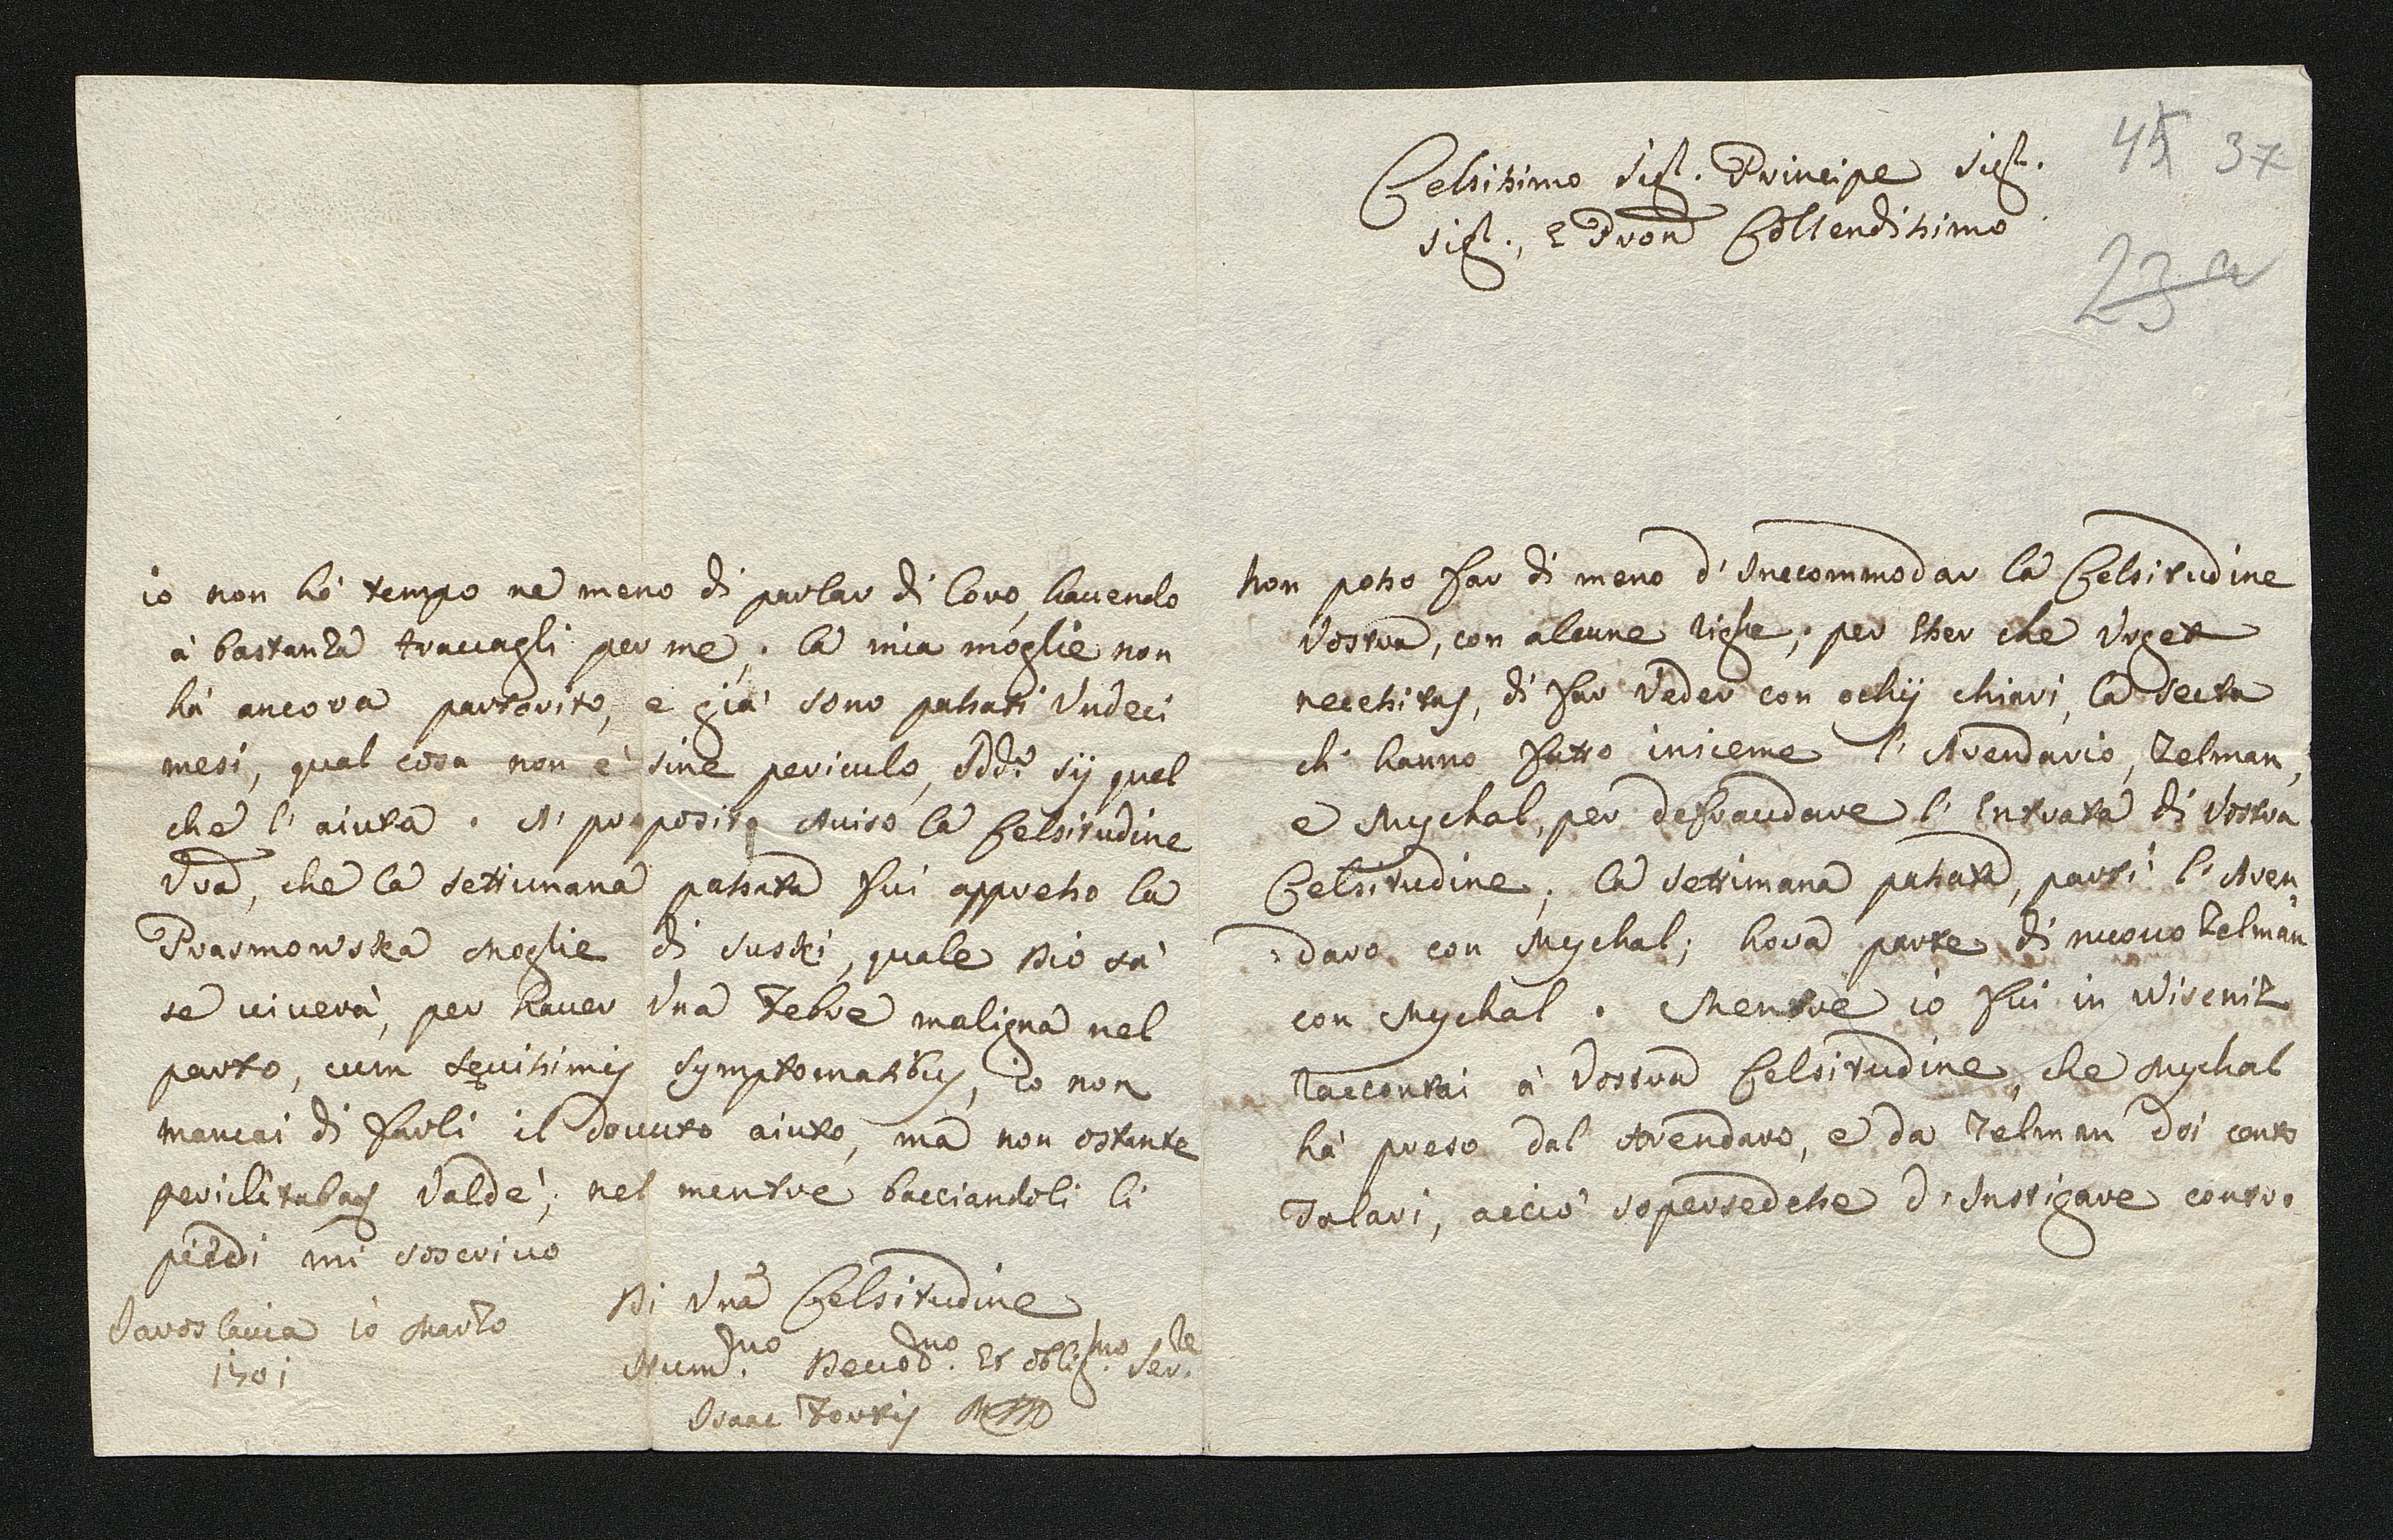 45 37
Celsissimo Sigl. Principe Sigl.
Sigl., e Pron Collendissimo
23 a
Non posso far di meno d'Inecommodar la Celsitudine
Vostra, con alcune righe; per esser che Urget
necessitas, di far Veder con ochij chiari, la Secta
ch' hanno fatto insieme l'Arendario, Zelman,
e Mychal, per defraudare l'Entrata di Vostra
Celsitudine; la settimana passata, partì l'Aren
daro con Mychal; hora parte di nuouo Zelman
con Mychal. Mentre io fui in Wisenitz
raccontai à Vostra Celsitudine, che Mychal
hà preso dal Arendaro, e da Zelman doi cento
Talari, acciò supersedesse d'Instigare contro
io non hò tempo ne meno di parlar di loro, hauendo
à bastanza trauagli per me; la mia moglie non
hà ancora partorito, e già sono passati Undeci
mesi, qual cosa non è sine periculo, Iddio sij quel
che l'aiuta. A' proposito Auiso la Celsitudine
Vra, che la settimana passata fui appresso la
Prasmowska Moglie di Suski, quale Dio sà
se viuerà, per hauer Una Febre maligna nel
parto, cum sęuissimis symptomatibus, io non
mancai di farli il douuto aiuto, mà non ostante
periclitabas Valdè; nel mentre bacciandoli li
piedi mi soscriuo
Di Vra Celsitudine
Jaroslauia 10 Marzo
1701
Hum.mo Deuo.mo Et oblig.mo Ser.re
Isaac Fortis MD